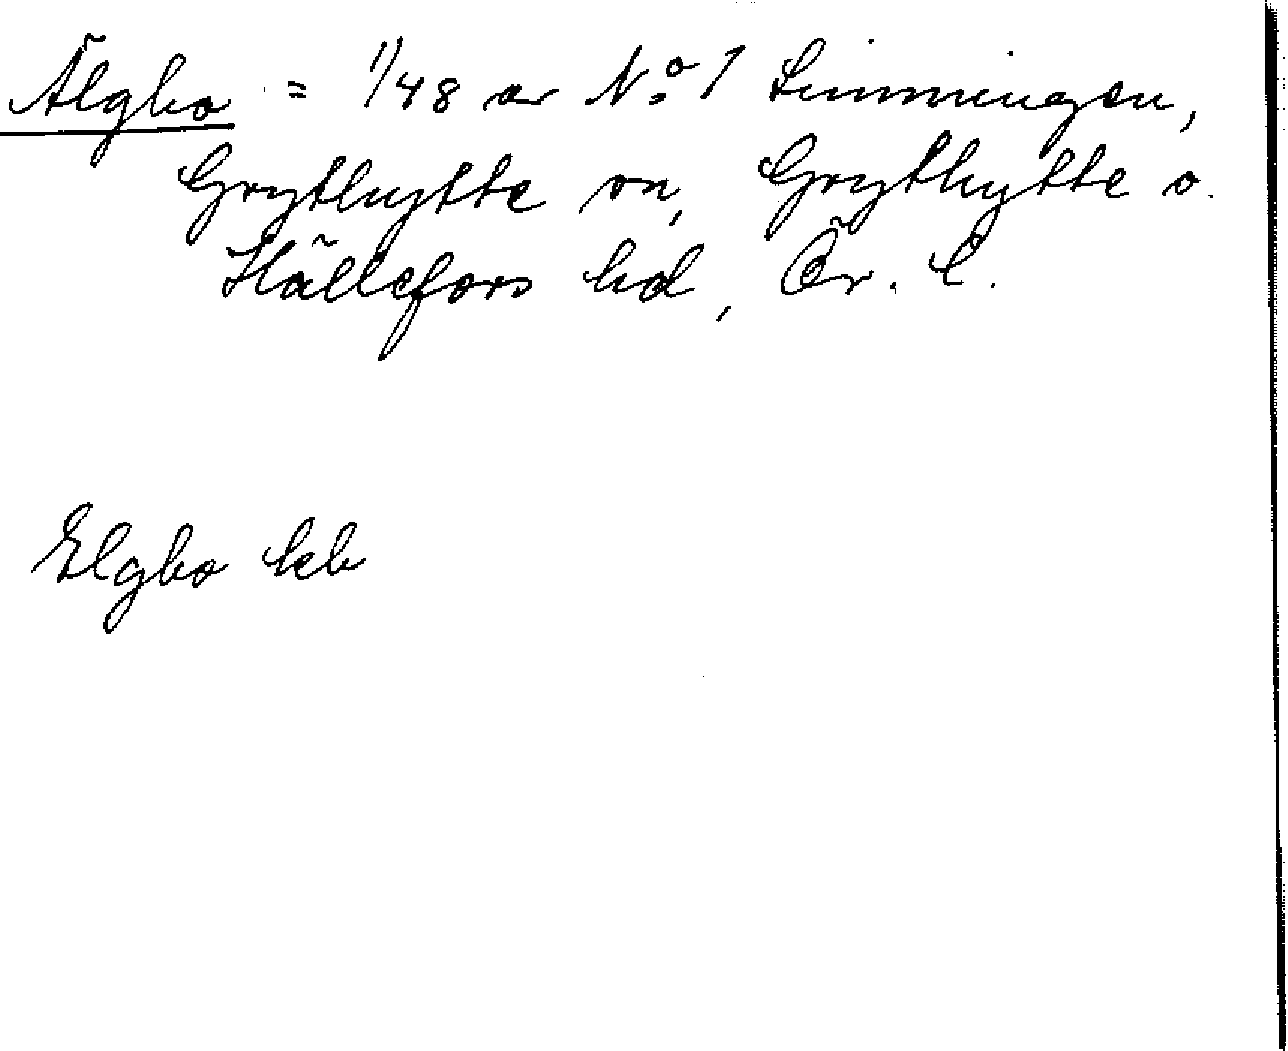 Älgbo = 1/48 av No 1 Limmingen,
Grythytte sn, Grythytte o.
Hällefors hd, Ör. l.
Elgbo